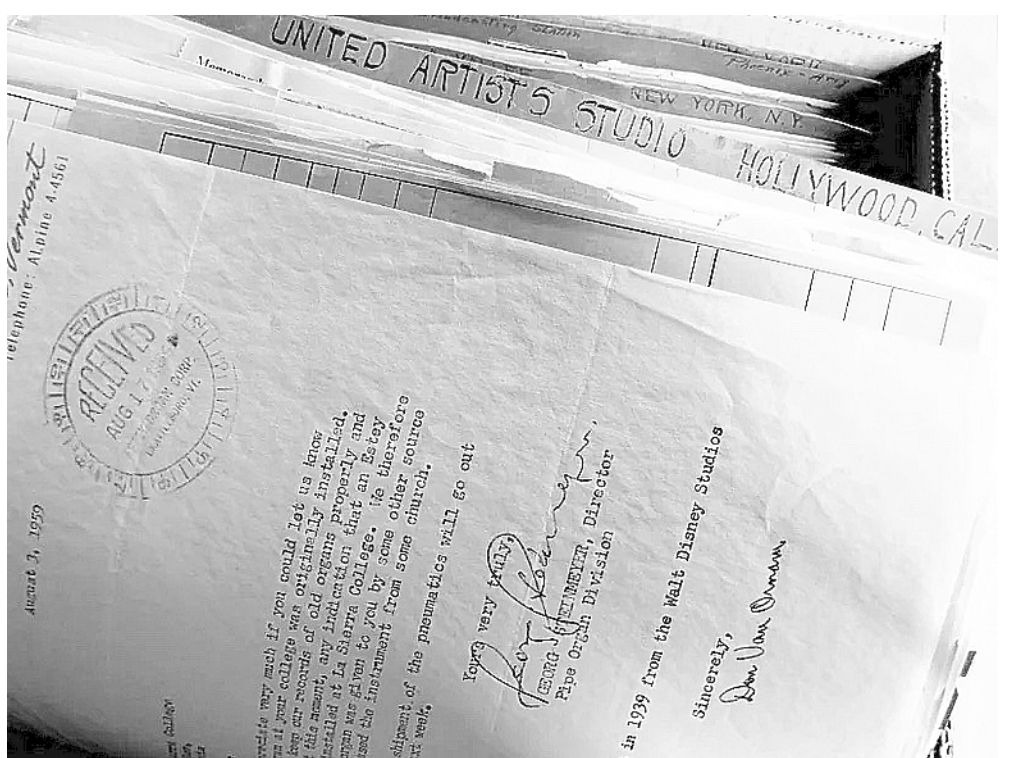 UNITED ARTISTS STUDIO HOLLYWOOD, CAL.
NEW YORK, N.Y.
Phoenix - Ariz
Vermont
Telephone: ALpine 4-4561
RECEIVED
AUG 17
CORP.
BRATTLEBORO, VT.
August 3, 1959
very much if you could let us know
at your college was originally installed.
keep our records of old organs properly and
this moment, any indication that an Estey
installed at La Sierra College. We therefore
was given to you by some other source
the instrument from some church.
shipment of the pneumatics will go out
week.
Yours very truly,
GEORG STEINMEYER, Director
Pipe Organ Division
in 1939 from the Walt Disney Studios
Sincerely,